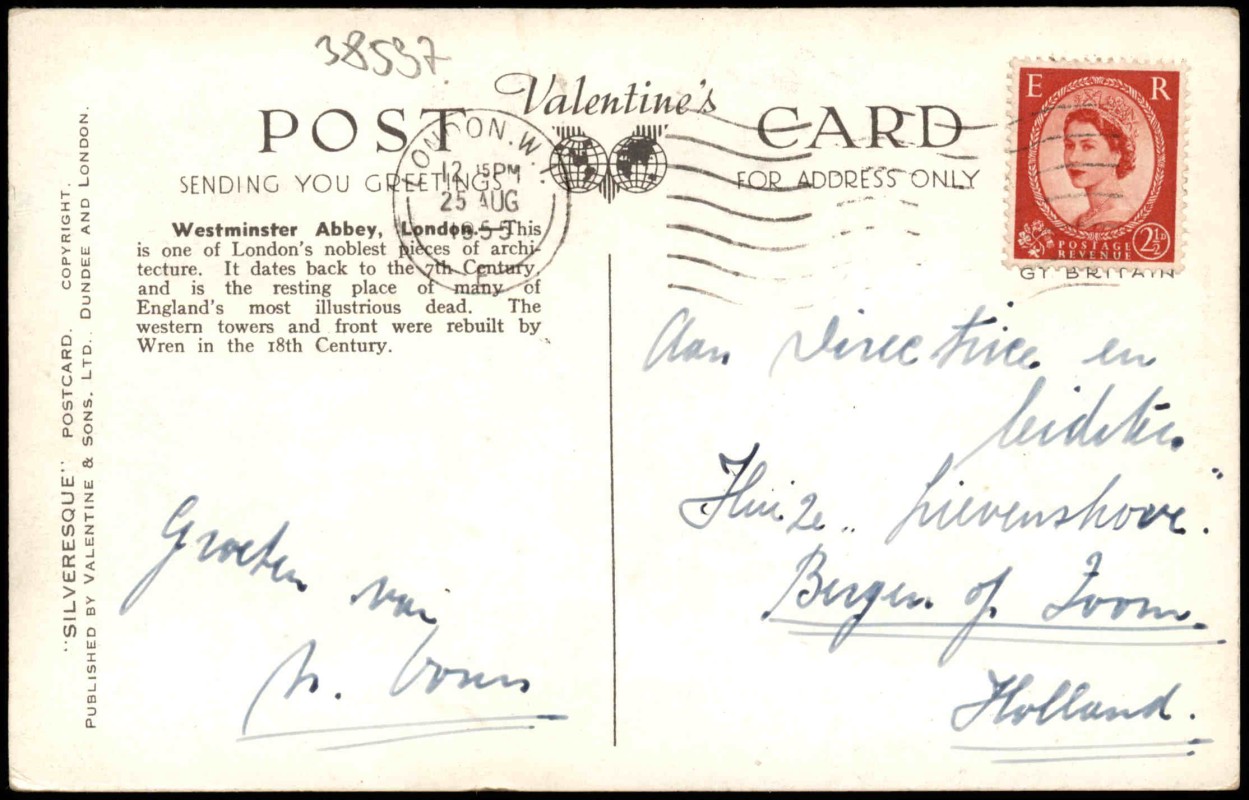 38537.
Valentine's
POST CARD
SENDING YOU GREETINGS
FOR ADDRESS ONLY
LONDON. W.
12 15PM
25 AUG
1955
E R
POSTAGE
REVENUE
2½D
GT BRITAIN
Westminster Abbey, London.—This
is one of London's noblest pieces of archi-
tecture. It dates back to the 7th Century,
and is the resting place of many of
England's most illustrious dead. The
western towers and front were rebuilt by
Wren in the 18th Century.
"SILVERESQUE" POSTCARD. COPYRIGHT.
PUBLISHED BY VALENTINE & SONS, LTD., DUNDEE AND LONDON.
Groeten van
Aan Directrice en
leidsters
Huize „Lievenshove".
Bergen op Zoom.
Holland.